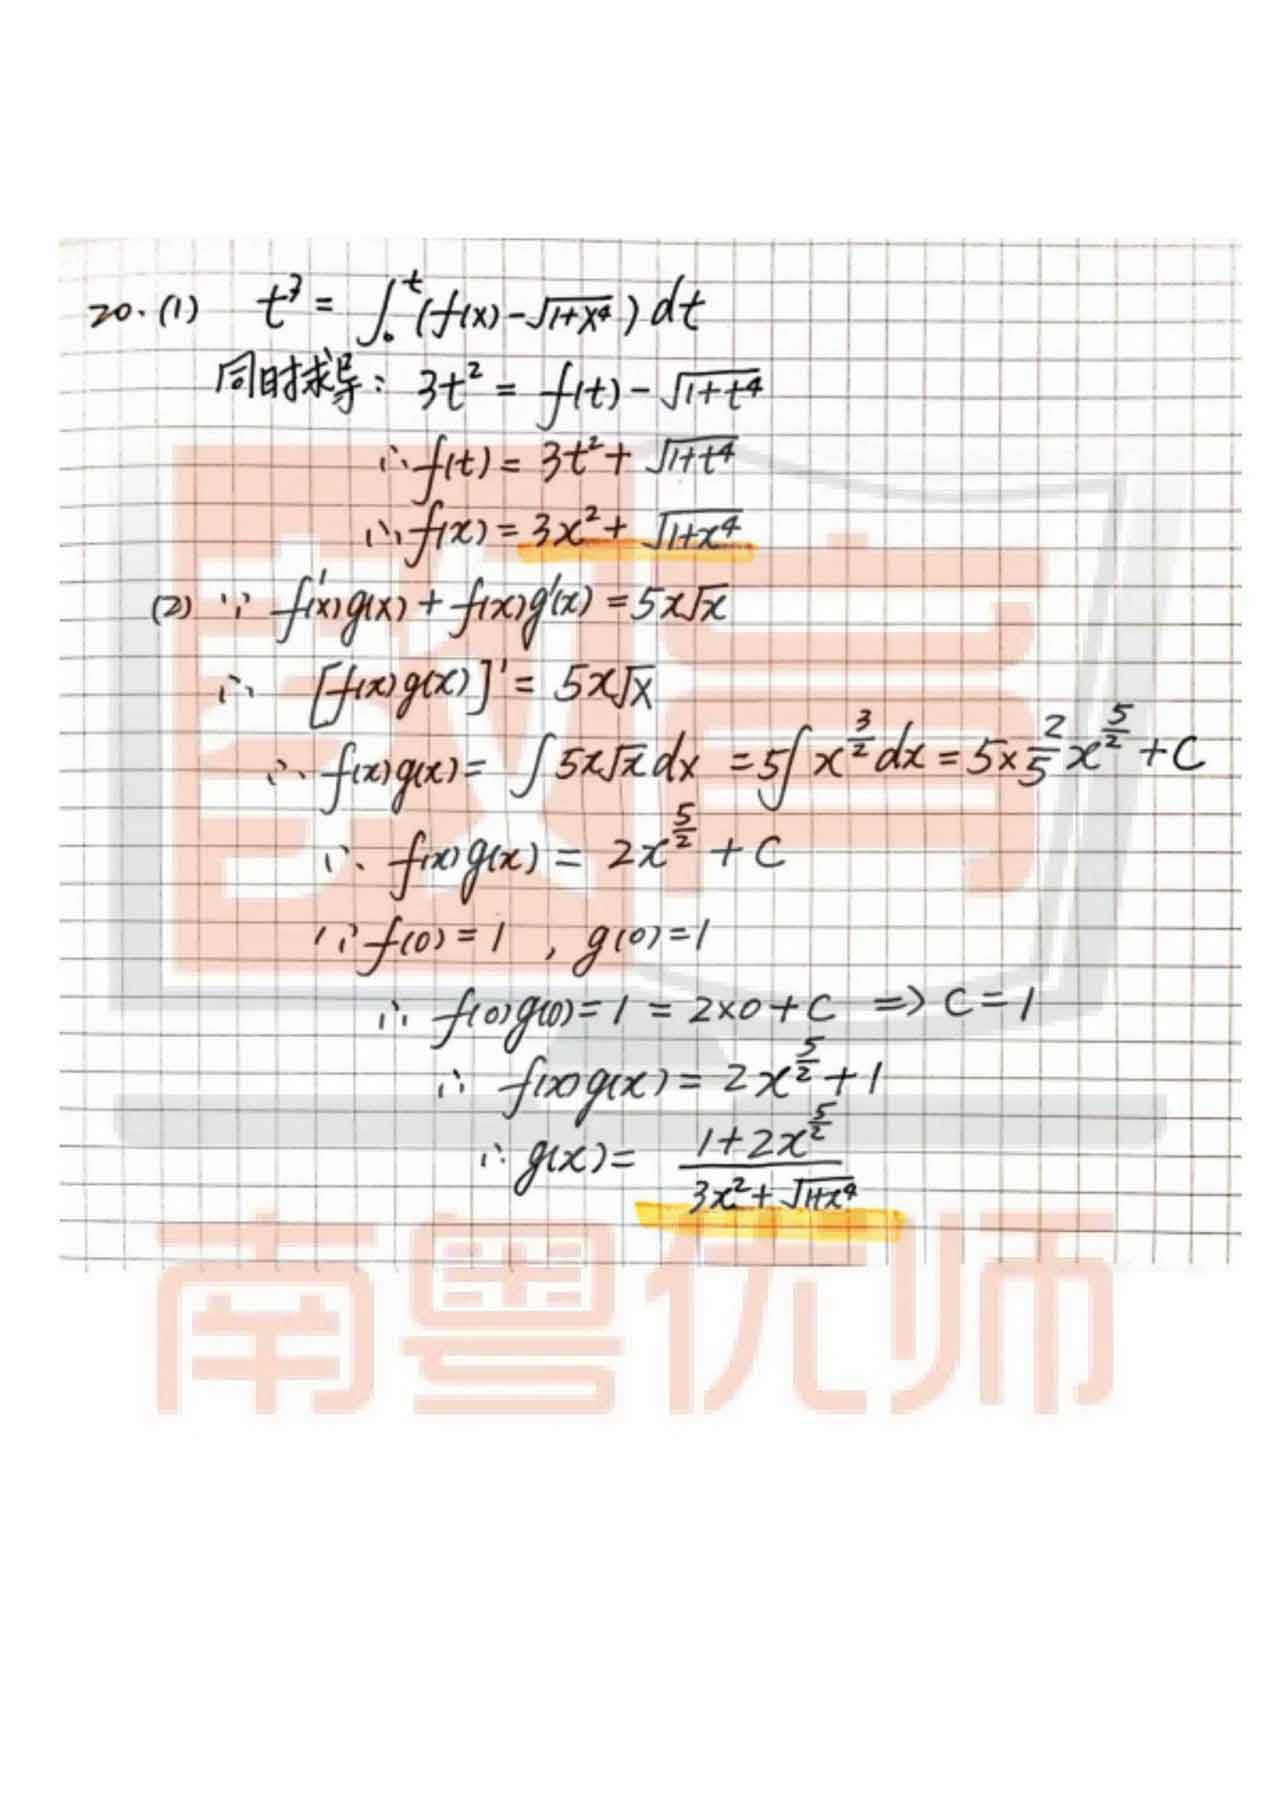 20.(1) t³ = ∫₀ᵗ (f(x) - √(1+x⁴)) dt
同时求导: 3t² = f(t) - √(1+t⁴)
∴ f(t) = 3t² + √(1+t⁴)
∴ f(x) = 3x² + √(1+x⁴)
(2) ∵ f'(x)g(x) + f(x)g'(x) = 5x√x
∴ [f(x)g(x)]' = 5x√x
∴ f(x)g(x) = ∫5x√x dx = 5∫x^(3/2) dx = 5×2/5 x^(5/2) + C
∴ f(x)g(x) = 2x^(5/2) + C
∵ f(0) = 1 , g(0) = 1
∴ f(0)g(0) = 1 = 2×0 + C ⇒ C = 1
∴ f(x)g(x) = 2x^(5/2) + 1
∴ g(x) = (1+2x^(5/2))/(3x²+√(1+x⁴))
南粤优师